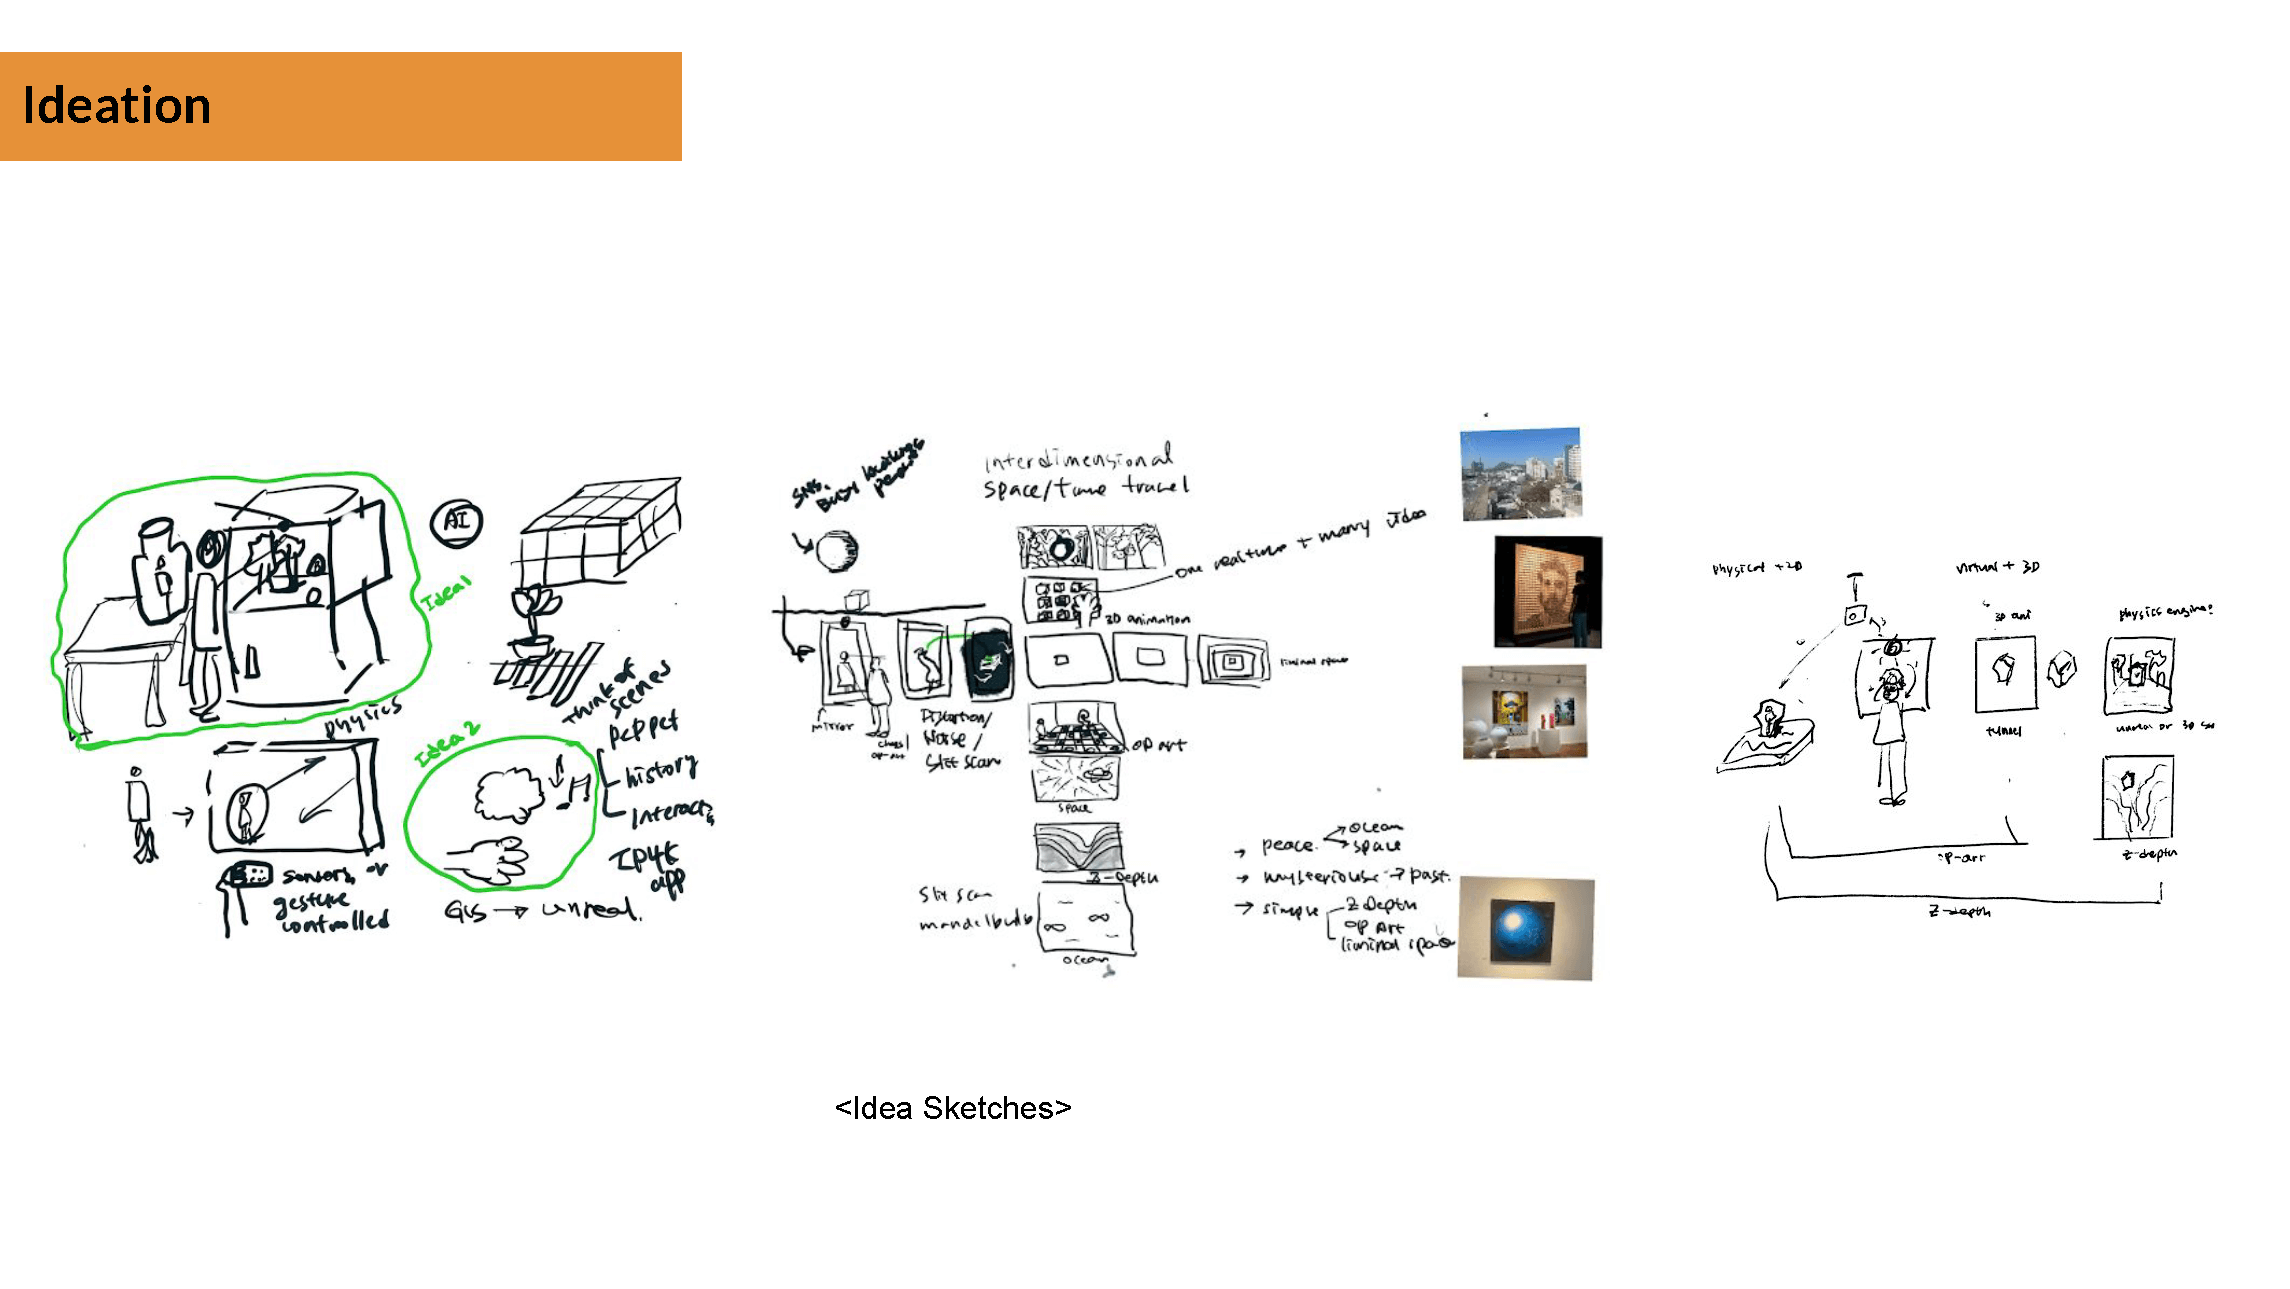 Ideation
AI
Idea1
physics
Think of
scenes
peppet
history
Interact
Idea2
sensors or
gesture
controlled
GIS → unreal.
app
SNS.
Busy
people
interdimensional
space/time travel
one realtime + many video
3D animation
liminal space
mirror
Distortion/
Noise/
Slit scan
op art
space
Z-Depth
Slit scan
mandelbulb
ocean
→ peace → ocean
→ space
→ mysterious → past.
→ simple
Z Depth
op Art
liminal space
physical + 2D
virtual + 3D
3D ani
physics engine?
tunnel
unreal or 3D
op-art
z-depth
Z-depth
<Idea Sketches>